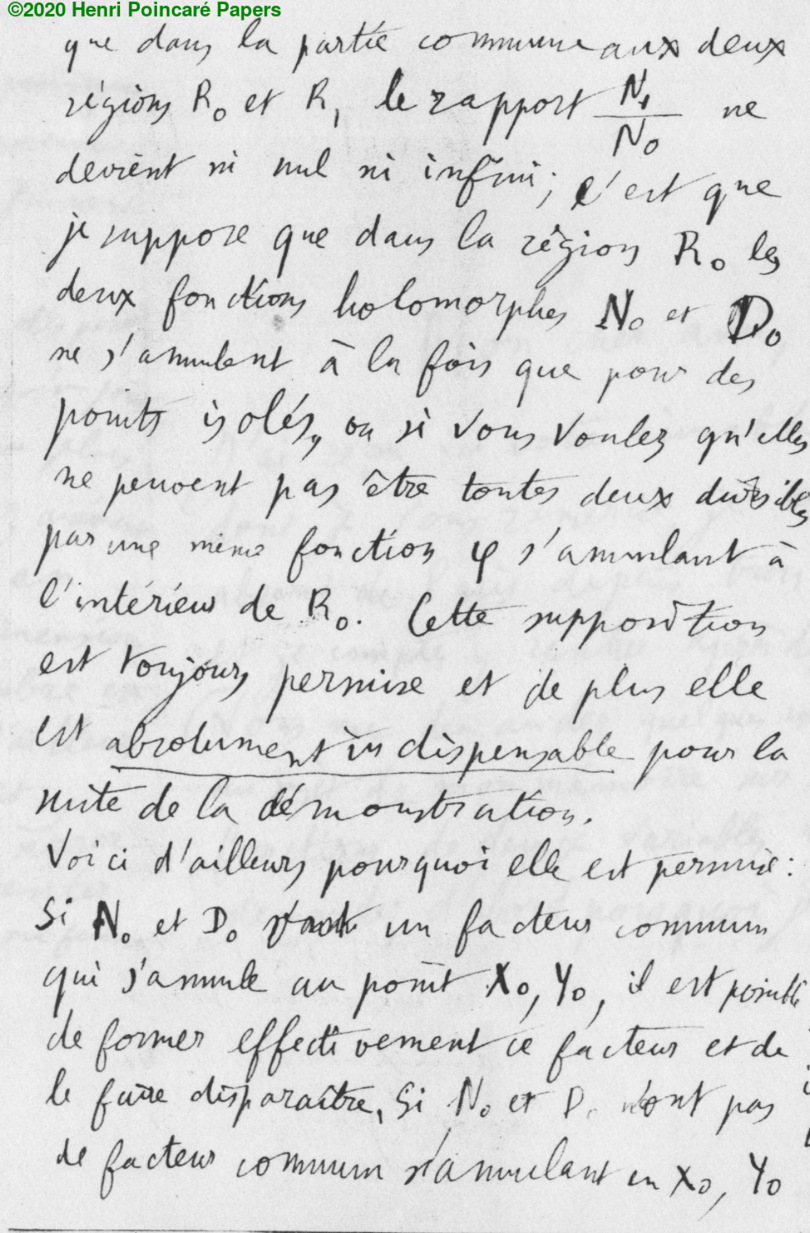 ©2020 Henri Poincaré Papers
que dans la partie commune aux deux
régions R₀ et R₁ le rapport N₁/N₀ ne
devient ni nul ni infini; c'est que
je suppose que dans la région R₀ les
deux fonctions holomorphes N₀ et D₀
ne s'annulent à la fois que pour des
points isolés, ou si vous voulez qu'elles
ne peuvent pas être toutes deux divisibles
par une même fonction φ s'annulant à
l'intérieur de R₀. Cette supposition
est toujours permise et de plus elle
est absolument indispensable pour la
suite de la démonstration.
Voici d'ailleurs pourquoi elle est permise:
Si N₀ et D₀ un facteur commun
qui s'annule au point X₀, Y₀, il est possible
de former effectivement ce facteur et de
le faire disparaître, Si N₀ et D₀ n'ont pas
de facteur commun s'annulant en X₀, Y₀